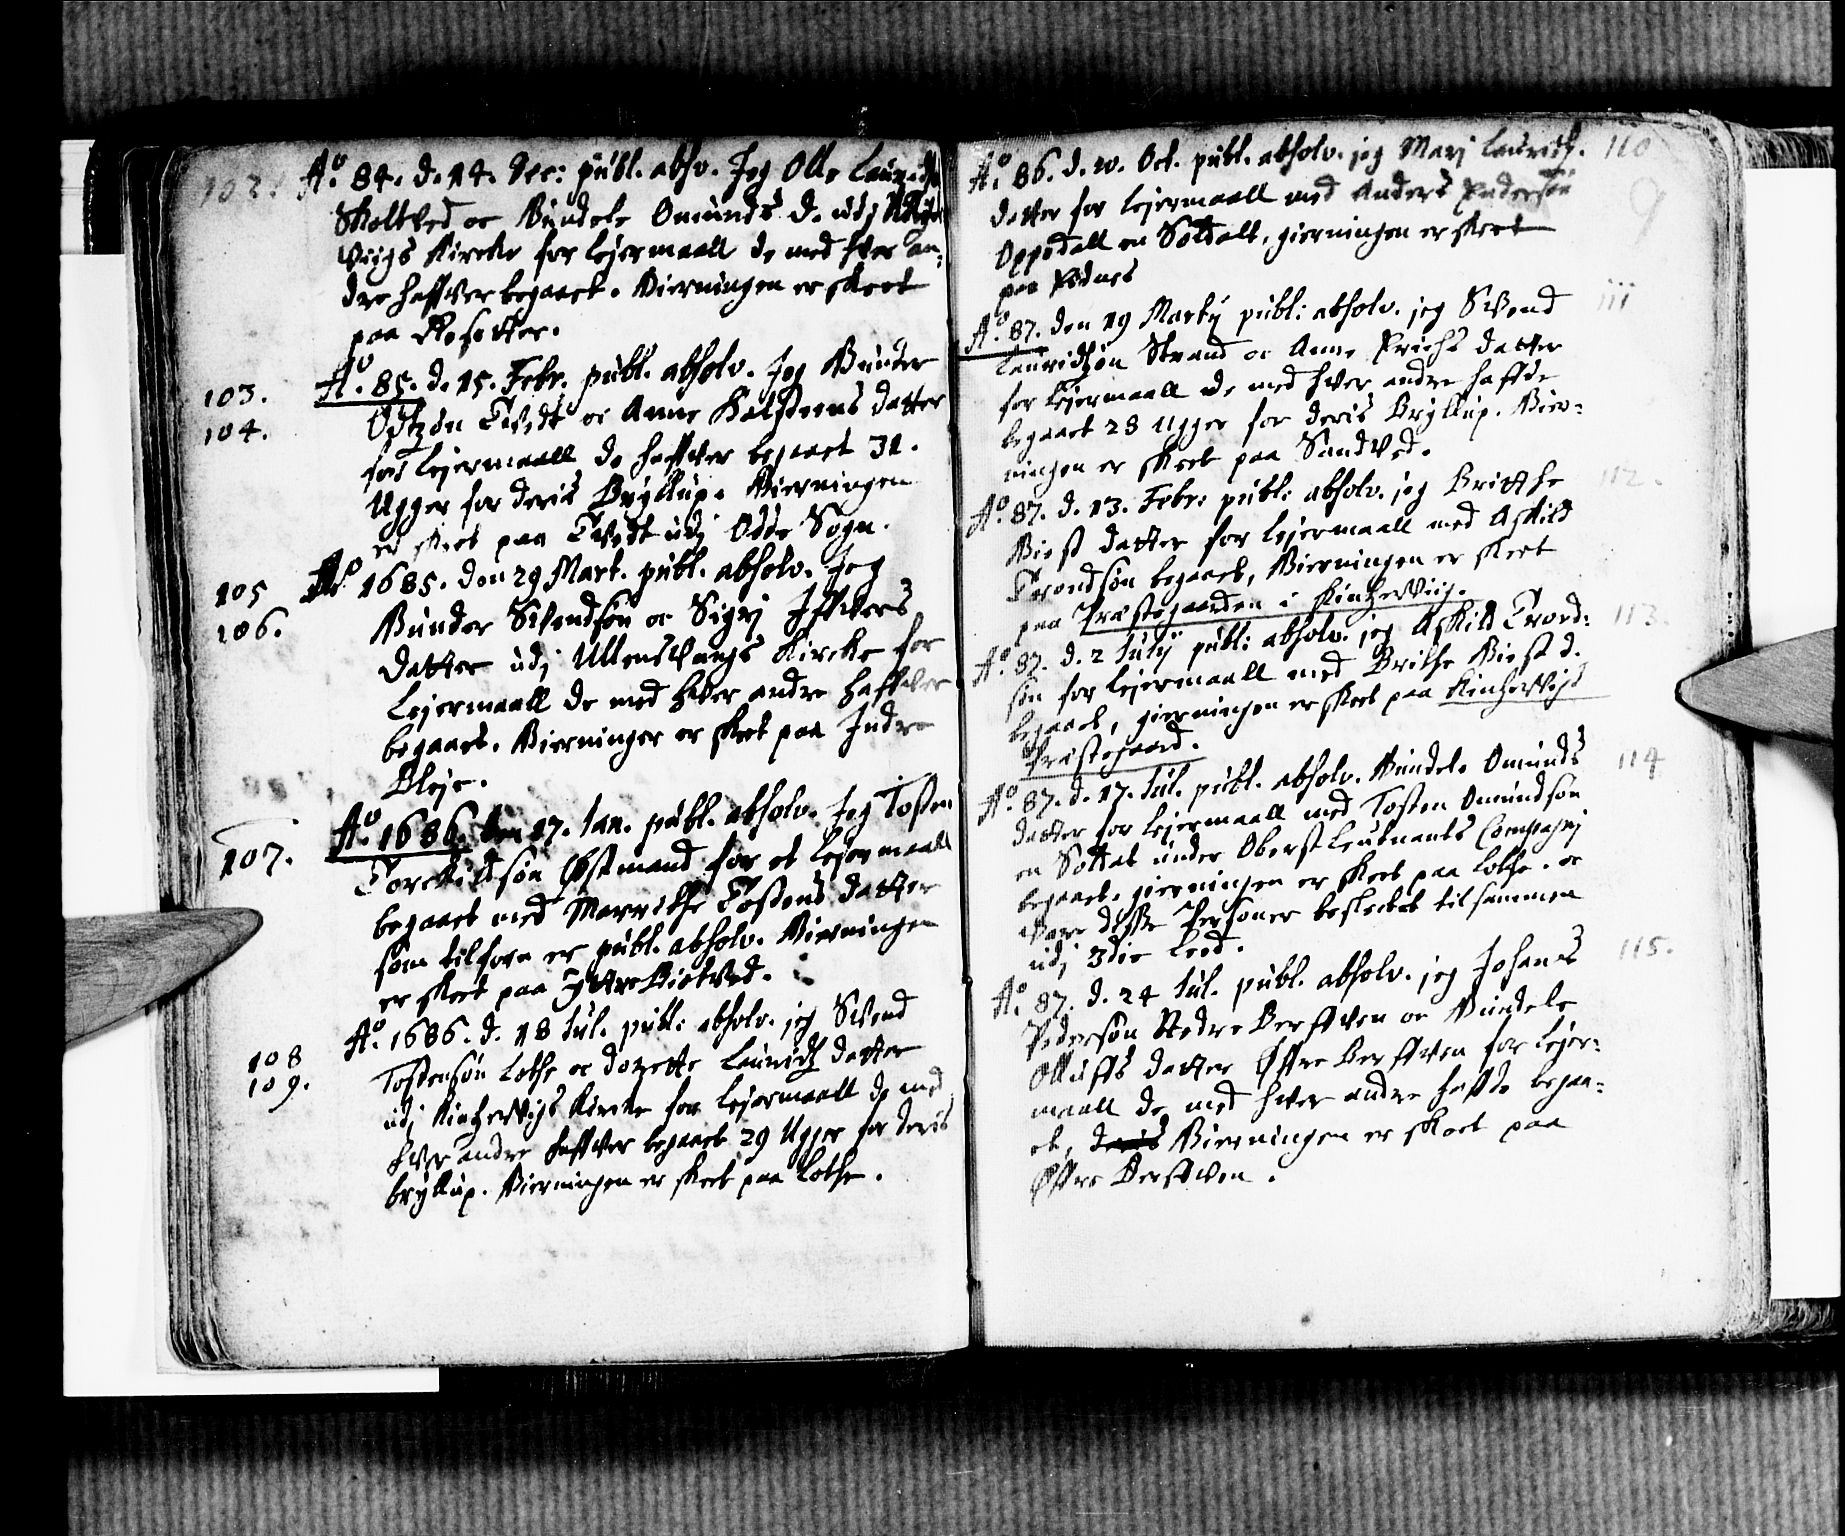 102. Ao. 84. d. 14. Dec: publ. absv. Jeg Olle Laurids
Skoltved oc Gundele Omunds d. udj
Viigs Kircke for lejermaall de med hver an:
dre haffver begaaet. Gierningen er skeet
paa
103. Ao. 85. d. 15. Febr. publ. absolv. Jeg Gunder
104. Tvedt oc Anne datter
for lejermaall de haffver begaaet 31.
Ugger for deris Bryllup. Gierningen
er skeet paa Tvedt udj Odde Sogn.
105 Ao. 1685. den 29 Mart. publ. absolv. Jeg
106. Gunder Svendsøn oc Sigrj Iffvers
datter udj Ullensvangs Kircke for
Lejermaall de med hver andre haffver
begaaet. Gierningen er skeet paa Indre
Bleje.
107. Ao. 1686. den 17. Jan. publ. absolv. Jeg Tosten
Torckildsøn for et lejermaall
begaaet med Marrithe Tostens datter
som tilforn er publ. absolv. Gierningen
er skeet paa Yttre
Ao. 1686. d. 18 Jul. publ: absolv. jeg Svend
108 Tostensøn Lothe oc Dorette Lauridz datter
109. udj Kinzervigs Kircke for lejermaall de med
hver andre haffver begaaet 29 Ugger for deris
bryllup. Gierningen er skeet paa Lothe.
Ao. 86. d. 10. Oct. publ. absolv. jeg Marj Lauridz. 110
datter for lejermaall med Anders Pedersøn 9
Oppedall en Soldatt, gierningen er skeet
paa
Ao. 87. den 19 Martij publ: absolv. jeg Svend 111
Lauridsøn Strand oc Anne Erichs datter
for lejermaall de med hver andre haffde
begaaet 28 Ugger for deris Bryllup. Gier:
ningen er skeet paa Sandved.
Ao. 87. d. 13. Febr: publ: absolv. jeg Britthe 112.
Giest datter for lejermaall med Askild
Trondsøn begaaet, Gierningen er skeet
paa Præstegaarden i Kinzerviig.
Ao. 87. d. 2 Julij publ: absolv. jeg Askild Trond: 113.
søn for lejermaall med Brithe Giest d.
begaaet, gierningen er skeet paa Kinzervigs
Præstegaard.
Ao. 87. d. 17. Jul. publ. absolv. Gundele Omunds 114
datter for lejermaall med Tosten Omundsøn
en Soldat under Oberst Leutnants Compagnj
begaaet. gierningen er skeet paa Lothe. oc
vare disse Personer beslectet tilsammen
udj 3die Leed.
Ao. 87. d. 24 Jul. publ. absolv. jeg Johanes 115.
Pedersøn Nedre Berffven oc Gundele
Olluffs datter Øffre Berffven for lejer:
maall de med hver andre haffde begaa:
et, deris Gierningen er skeet paa
Øffre Berffven.